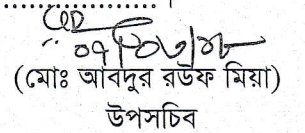 (মোঃ আবদুর রউফ মিয়া)
উপসচিব